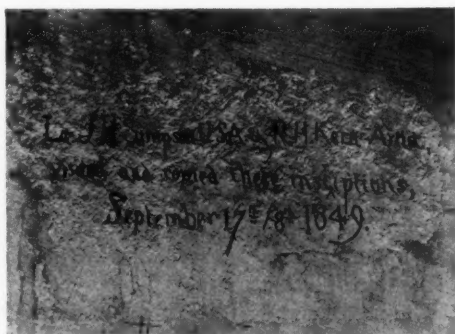 Lt. J. H. Simpson USA & R. H. Kern Artist,
visited and copied these inscriptions,
September 17th 18th 1849.